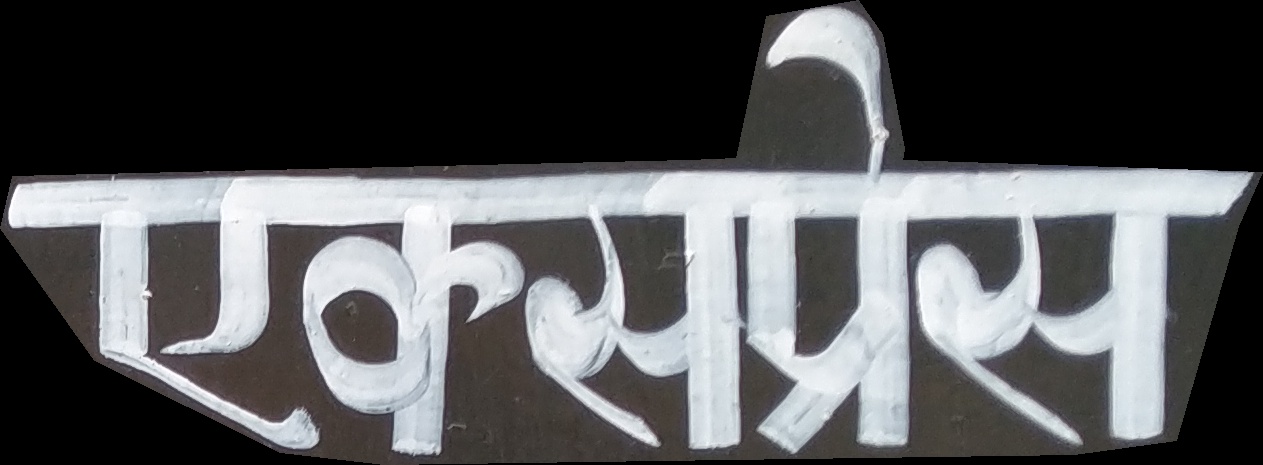 एकसप्रेस